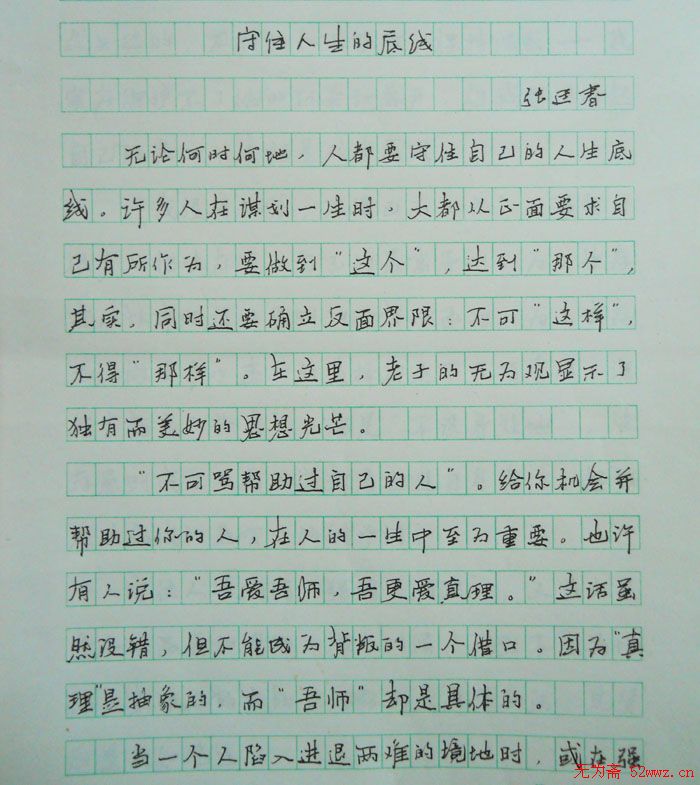 守住人生的底线
张廷春
无论何时何地，人都要守住自己的人生底
线。许多人在谋划一生时，大都从正面要求自
己有所作为，要做到“这个”，达到“那个”，
其实，同时还要确立反面界限：不可“这样”，
不得“那样”。在这里，老子的无为观显示了
独有而美妙的思想光芒。
“不可骂帮助过自己的人”。给你机会并
帮助过你的人，在人的一生中至为重要。也许
有人说：“吾爱吾师，吾更爱真理。”这话虽
然没错，但不能成为背叛的一个借口。因为“真
理”是抽象的，而“吾师”却是具体的。
当一个人陷入进退两难的境地时，或在强
无为斋 52wwz.cn